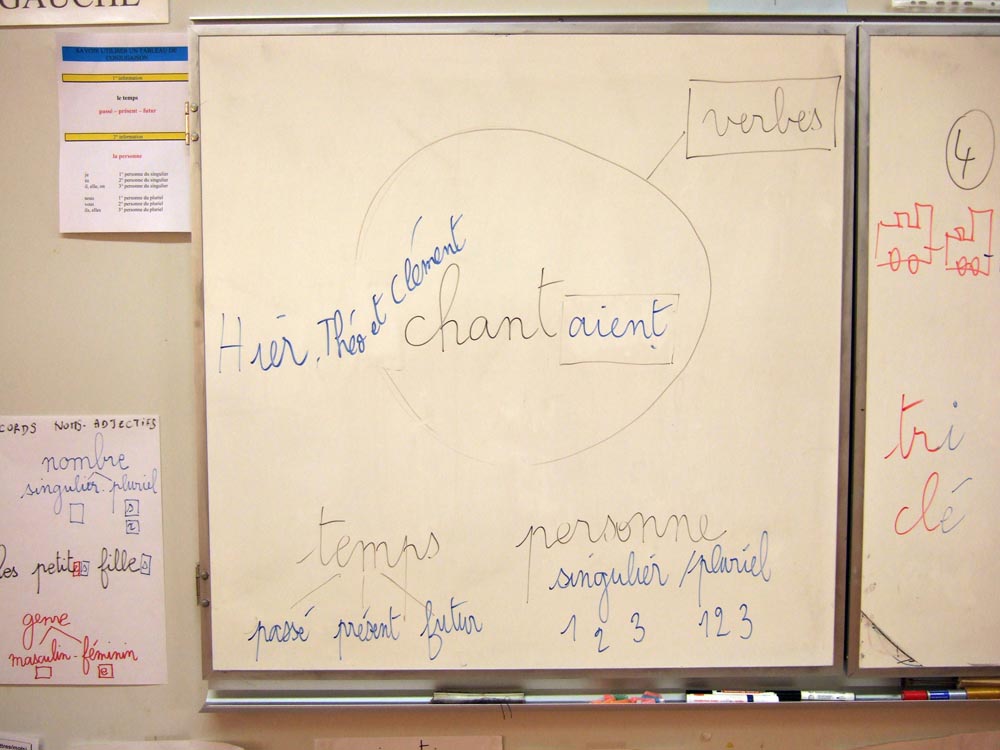 GAUCHE
SAVOIR UTILISER UN TABLEAU DE
CONJUGAISON
1° information
le temps
passé – présent – futur
2° information
la personne
je 1° personne du singulier
tu 2° personne du singulier
il, elle, on 3° personne du singulier
nous 1° personne du pluriel
vous 2° personne du pluriel
ils, elles 3° personne du pluriel
verbes
Hier, Théo et Clément chantaient
temps
passé présent futur
personne
singulier / pluriel
1 2 3 1 2 3
4
tri
clé
CORDS NOMS - ADJECTIFS
nombre
singulier - pluriel
s
x
les petites filles
genre
masculin - féminin
e